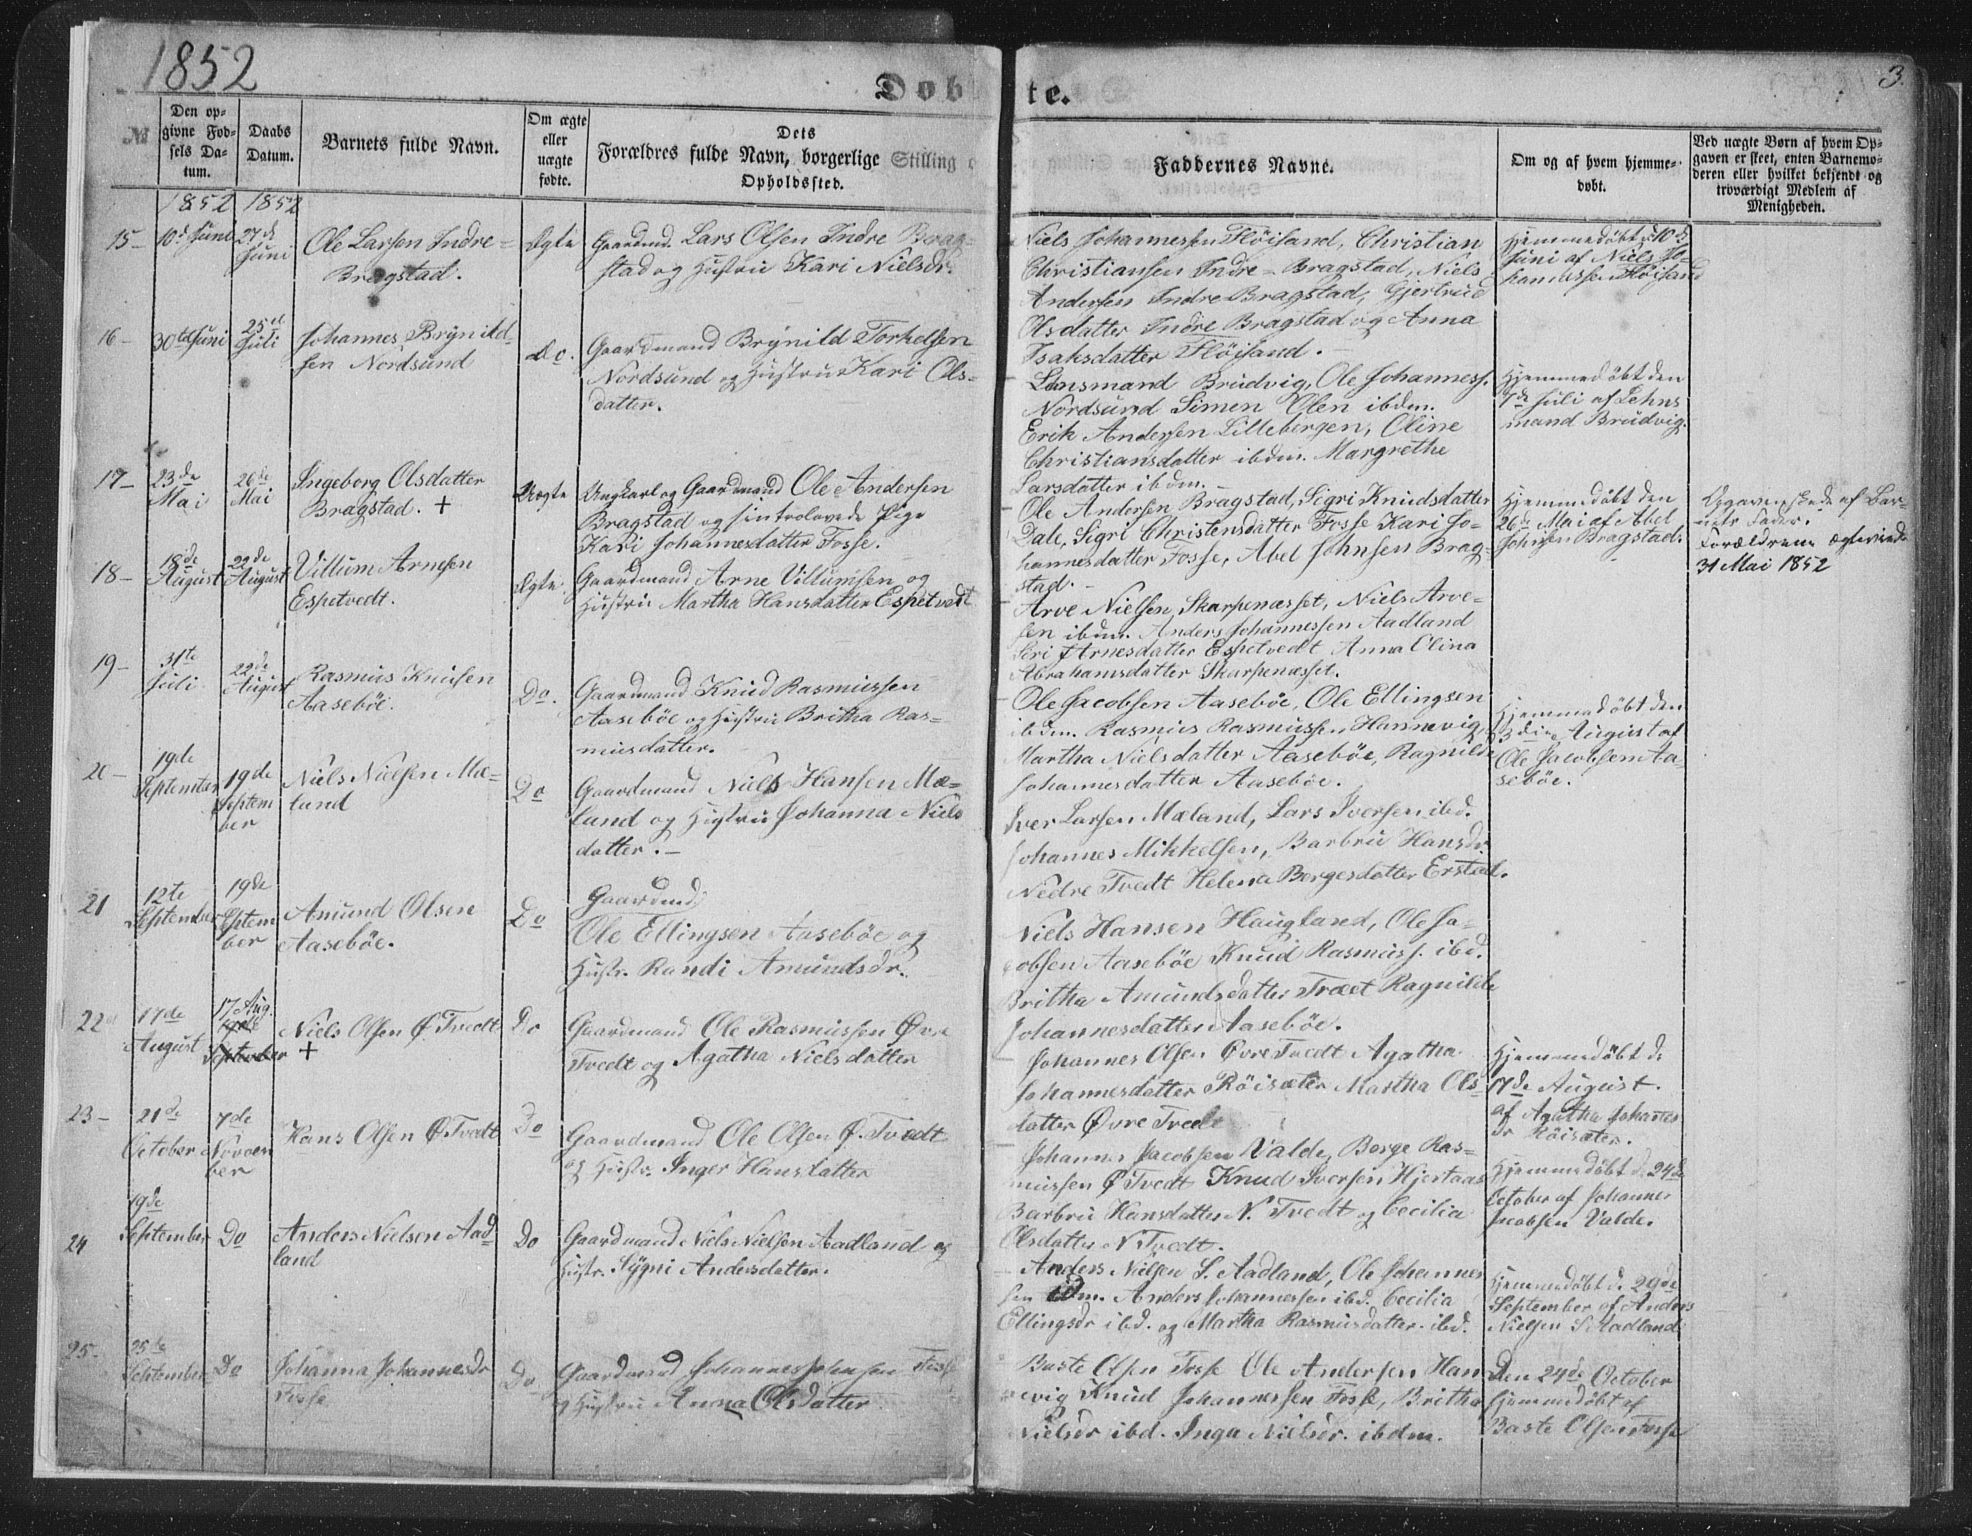 1852
Døbte.
3.
№
Den op-
givne Fød-
sels Da-
tum.
Daabs
Datum.
Barnets fulde Navn.
Om ægte
eller
uægte
fødte.
Dets
Forældres fulde Navn, borgerlige Stilling o
Opholdssted.
Faddernes Navne.
Om og af hvem hjemme-
døbt.
Ved uægte Børn af hvem Op-
gaven er skeet, enten Barnemo-
deren eller hvilket bekjendt og
troværdigt Medlem af
Menigheden.
1852 1852
15-
10de Juni
27de
Juni
Ole Larsen Indre=
Bragstad.
Ægte
Gaardmd. Lars Olsen Indre Brag-
stad og Hustrue Kari Nielsdr.
Niels Johannessen Flöisand, Christian
Christiansen Indre=Bragstad, Niels
Andersen Indre Bragstad, Gjertrud
Olsdatter Indre Bragstad og Anna
Isaksdatter Flöisand.
Hjemmedöbt d. 10de
Juni af Niels Jo-
hannessen Flöisand
16-
30te Juni
25de
Juli
Johannes Brynild-
sen Nordsund
Do.
Gaardmand Brynild Torkelsen
Nordsund og Hustrue Kari Ols-
datter.
Lensmand Brudvig, Ole Johanness.
Nordsund Simen Olen ibdm.
Erik Andersen Lillebergen, Oline
Christiansdatter ibdm. Margrethe
Larsdatter ibdm.
Hjemmedöbt den
7de Juli af Lehns
mand Brudvig.
17-
23de
Mai
26de
Mai
Ingeborg Olsdatter
Bragstad. +
Uægte
Ungkarl og Gaardmand Ole Andersen
Bragstad og sin trolovede Pige
Kari Johannesdatter Fosse.
Ole Andersen Bragstad, Sigri Knudsdatter
Dale, Sigri Christensdatter Fosse Kari Jo-
hannesdatter Fosse, Abel Johnsen Brag-
stad.
Hjemmedöbt den
26de Mai af Abel
Johnsen Bragstad.
Opgaven skede af Bar-
nets Fader.
Forældrene ægteviede
31 Mai 1852
18-
18de
August
22de
August
Villum Arnesen
Espetvedt.
Ægte.
Gaardmand Arne Villumsen og
Hustrue Martha Hansdatter Espetvedt
Arve Nielsen Skarpenæsset, Niels Arve-
sen ibdm. Anders Johannessen Aadland
Siri Arnesdatter Espetvedt Anna Olina
Abrahamsdatter Skarpenæsset.
19-
31te
Juli
22de
August
Rasmus Knudsen
Aaseböe.
Do.
Gaardmand Knud Rasmussen
Aaseböe og Hustrue Britha Ras-
musdatter.
Ole Jacobsen Aaseböe, Ole Ellingsen
ibdm. Rasmus Rasmussen Hannevig,
Martha Nielsdatter Aaseböe, Ragnilde
Johannesdatter Aaseböe.
Hjemmedöbt den
3die August af
Ole Jacobsen Aa-
seböe.
20-
19de
September
19de
Septem
ber
Niels Nielsen Mæ-
land
Do
Gaardmand Niels Hansen Mæ-
land og Hustrue Johanna Niels
datter.-
Iver Larsen Mæland, Lars Iversen ibd.
Johannes Mikkelsen, Barbru Hansdr.
Nedre Tvedt Helena Børgesdatter Erstad.
21
12te
September
19de
Septem
ber
Amund Olsen
Aaseböe.
Do
Gaardmd.
Ole Ellingsen Aaseböe og
Hustr. Randi Amundsdr.
Niels Hansen Haugland, Ole Ja-
cobsen Aaseböe Knud Rasmuss. ibd.
Britha Amundsdatter Træet Ragnilde
Johannesdatter Aaseböe.
22
17de
August
17 Aug.
September
Niels Olsen Ø. Tvedt
+
Do
Gaardmand Ole Rasmussen Øvre
Tvedt og Agatha Nielsdatter
Johannes Olsen Øvre Tvedt Agatha
Johannesdatter Röisæter Martha Ols-
datter Øvre Tvedt
Hjemmedöbt d.
17de August.
af Agatha Johannes
dr Röisæter.
23-
21de
October
7de
Novem
ber
Hans Olsen Ø. Tvedt
Do
Gaardmand Ole Olsen Ø. Tvedt
og Hustr. Inger Hansdatter
Johannes Jacobsen Valde, Børge Ras-
mussen Ø Tvedt Knud Iversen Hjertaas
Barbru Hansdatter N. Tvedt og Cecilia
Olsdatter N Tvedt.
Hjemmedöbt d. 24de
October af Johannes
Jacobsen Valde.
24
19de
September
Do
Anders Nielsen Aad
land
Do
Gaardmand Niels Nielsen Aadland og
Hustr. Sygni Andersdatter.
Anders Nielsen S. Aadland, Ole Johannes
sen ibdm. Anders Johannessen ibd. Cecilia
Ellingsdr ibd. og Martha Rasmusdatter ibd.
Hjemmedöbt d. 29de
September af Anders
Nielsen S Aadland
25-
25de
September
Do
Johanna Johannesdr
Fosse
Do
Gaardmand Johannes Johnsen Fosse
og Hustrue Anna Olsdatter
Baste Olsen Fosse Ole Andersen Han
nevig Knud Johannessen Fosse, Britha
Nielsdr ibd. Inga Nielsdr. ibdm.
Den 24de October
hjemmedöbt af
Baste Olsen Fosse